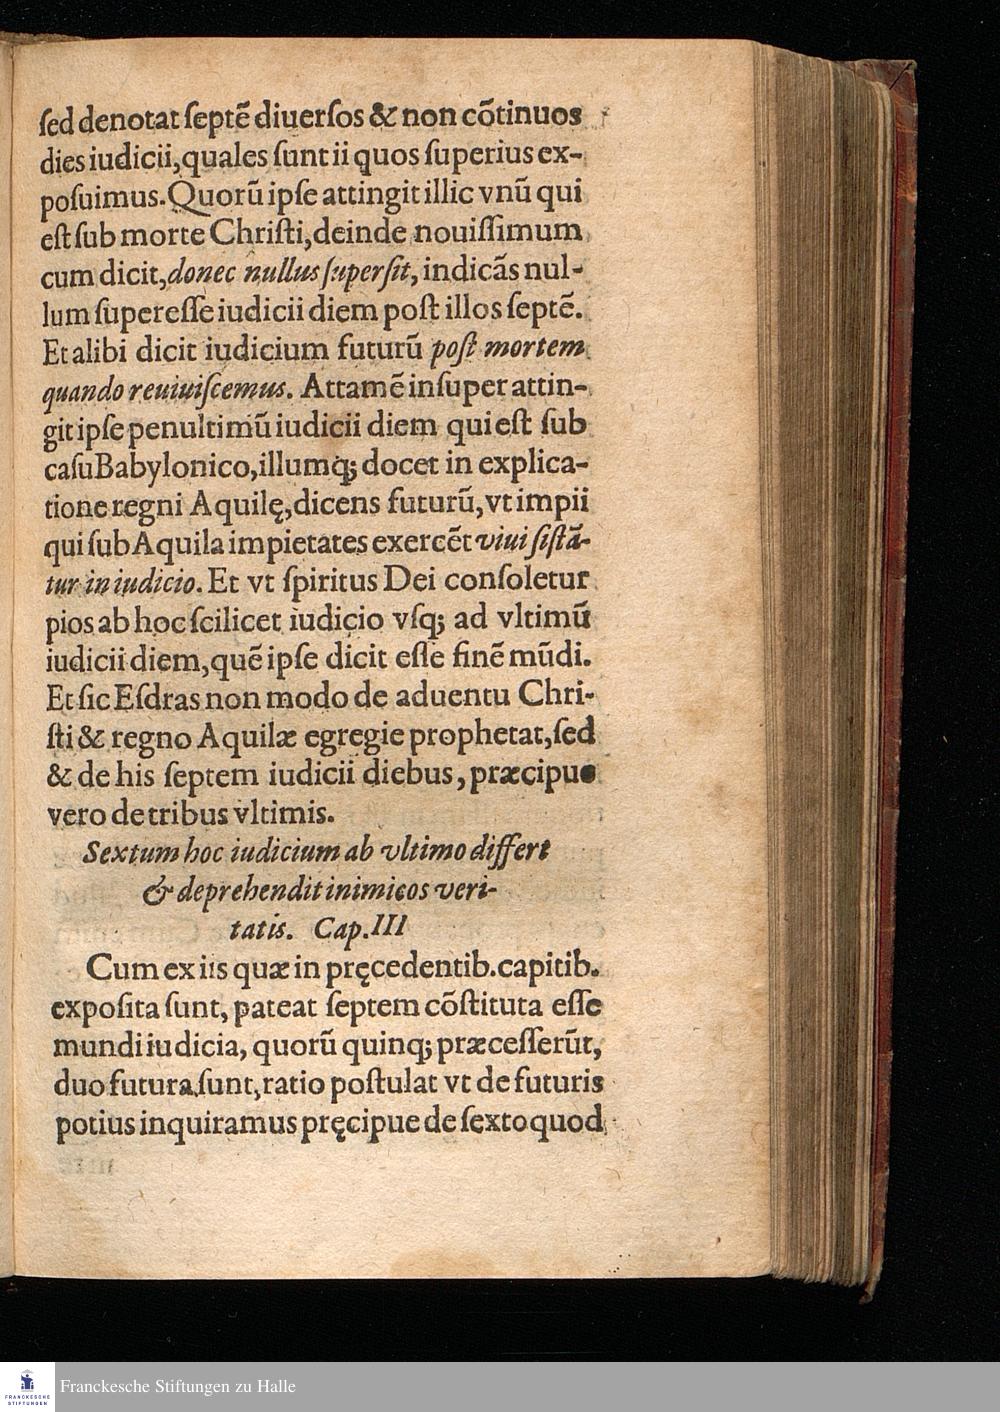 ſed denotat ſeptẽ diuerſos & non cõtinuos
dies iudicii, quales ſunt ii quos ſuperius ex-
poſuimus. Quorũ ipſe attingit illic vnũ qui
eſt ſub morte Chriſti, deinde nouiſſimum
cum dicit, donec nullus ſuperſit, indicãs nul-
lum ſupereſſe iudicii diem poſt illos ſeptẽ.
Et alibi dicit iudicium futurũ poſt mortem
quando reuiuiſcemus. Attamẽ inſuper attin-
git ipſe penultimũ iudicii diem qui eſt ſub
caſu Babylonico, illumq; docet in explica-
tione regni Aquilę, dicens futurũ, vt impii
qui ſub Aquila impietates exercẽt viui ſiſtã-
tur in iudicio. Et vt ſpiritus Dei conſoletur
pios ab hoc ſcilicet iudicio vſq; ad vltimũ
iudicii diem, quẽ ipſe dicit eſſe finẽ mũdi.
Et ſic Eſdras non modo de aduentu Chri-
ſti & regno Aquilæ egregie prophetat, ſed
& de his ſeptem iudicii diebus, præcipue
vero de tribus vltimis.
Sextum hoc iudicium ab vltimo differt
& deprehendit inimicos veri-
tatis. Cap. III
Cum ex iis quæ in pręcedentib. capitib.
expoſita ſunt, pateat ſeptem cõſtituta eſſe
mundi iudicia, quorũ quinq; præceſſerũt,
duo futura ſunt, ratio poſtulat vt de futuris
potius inquiramus pręcipue de ſexto quod
FRANCKESCHE
STIFTUNGEN
Franckesche Stiftungen zu Halle